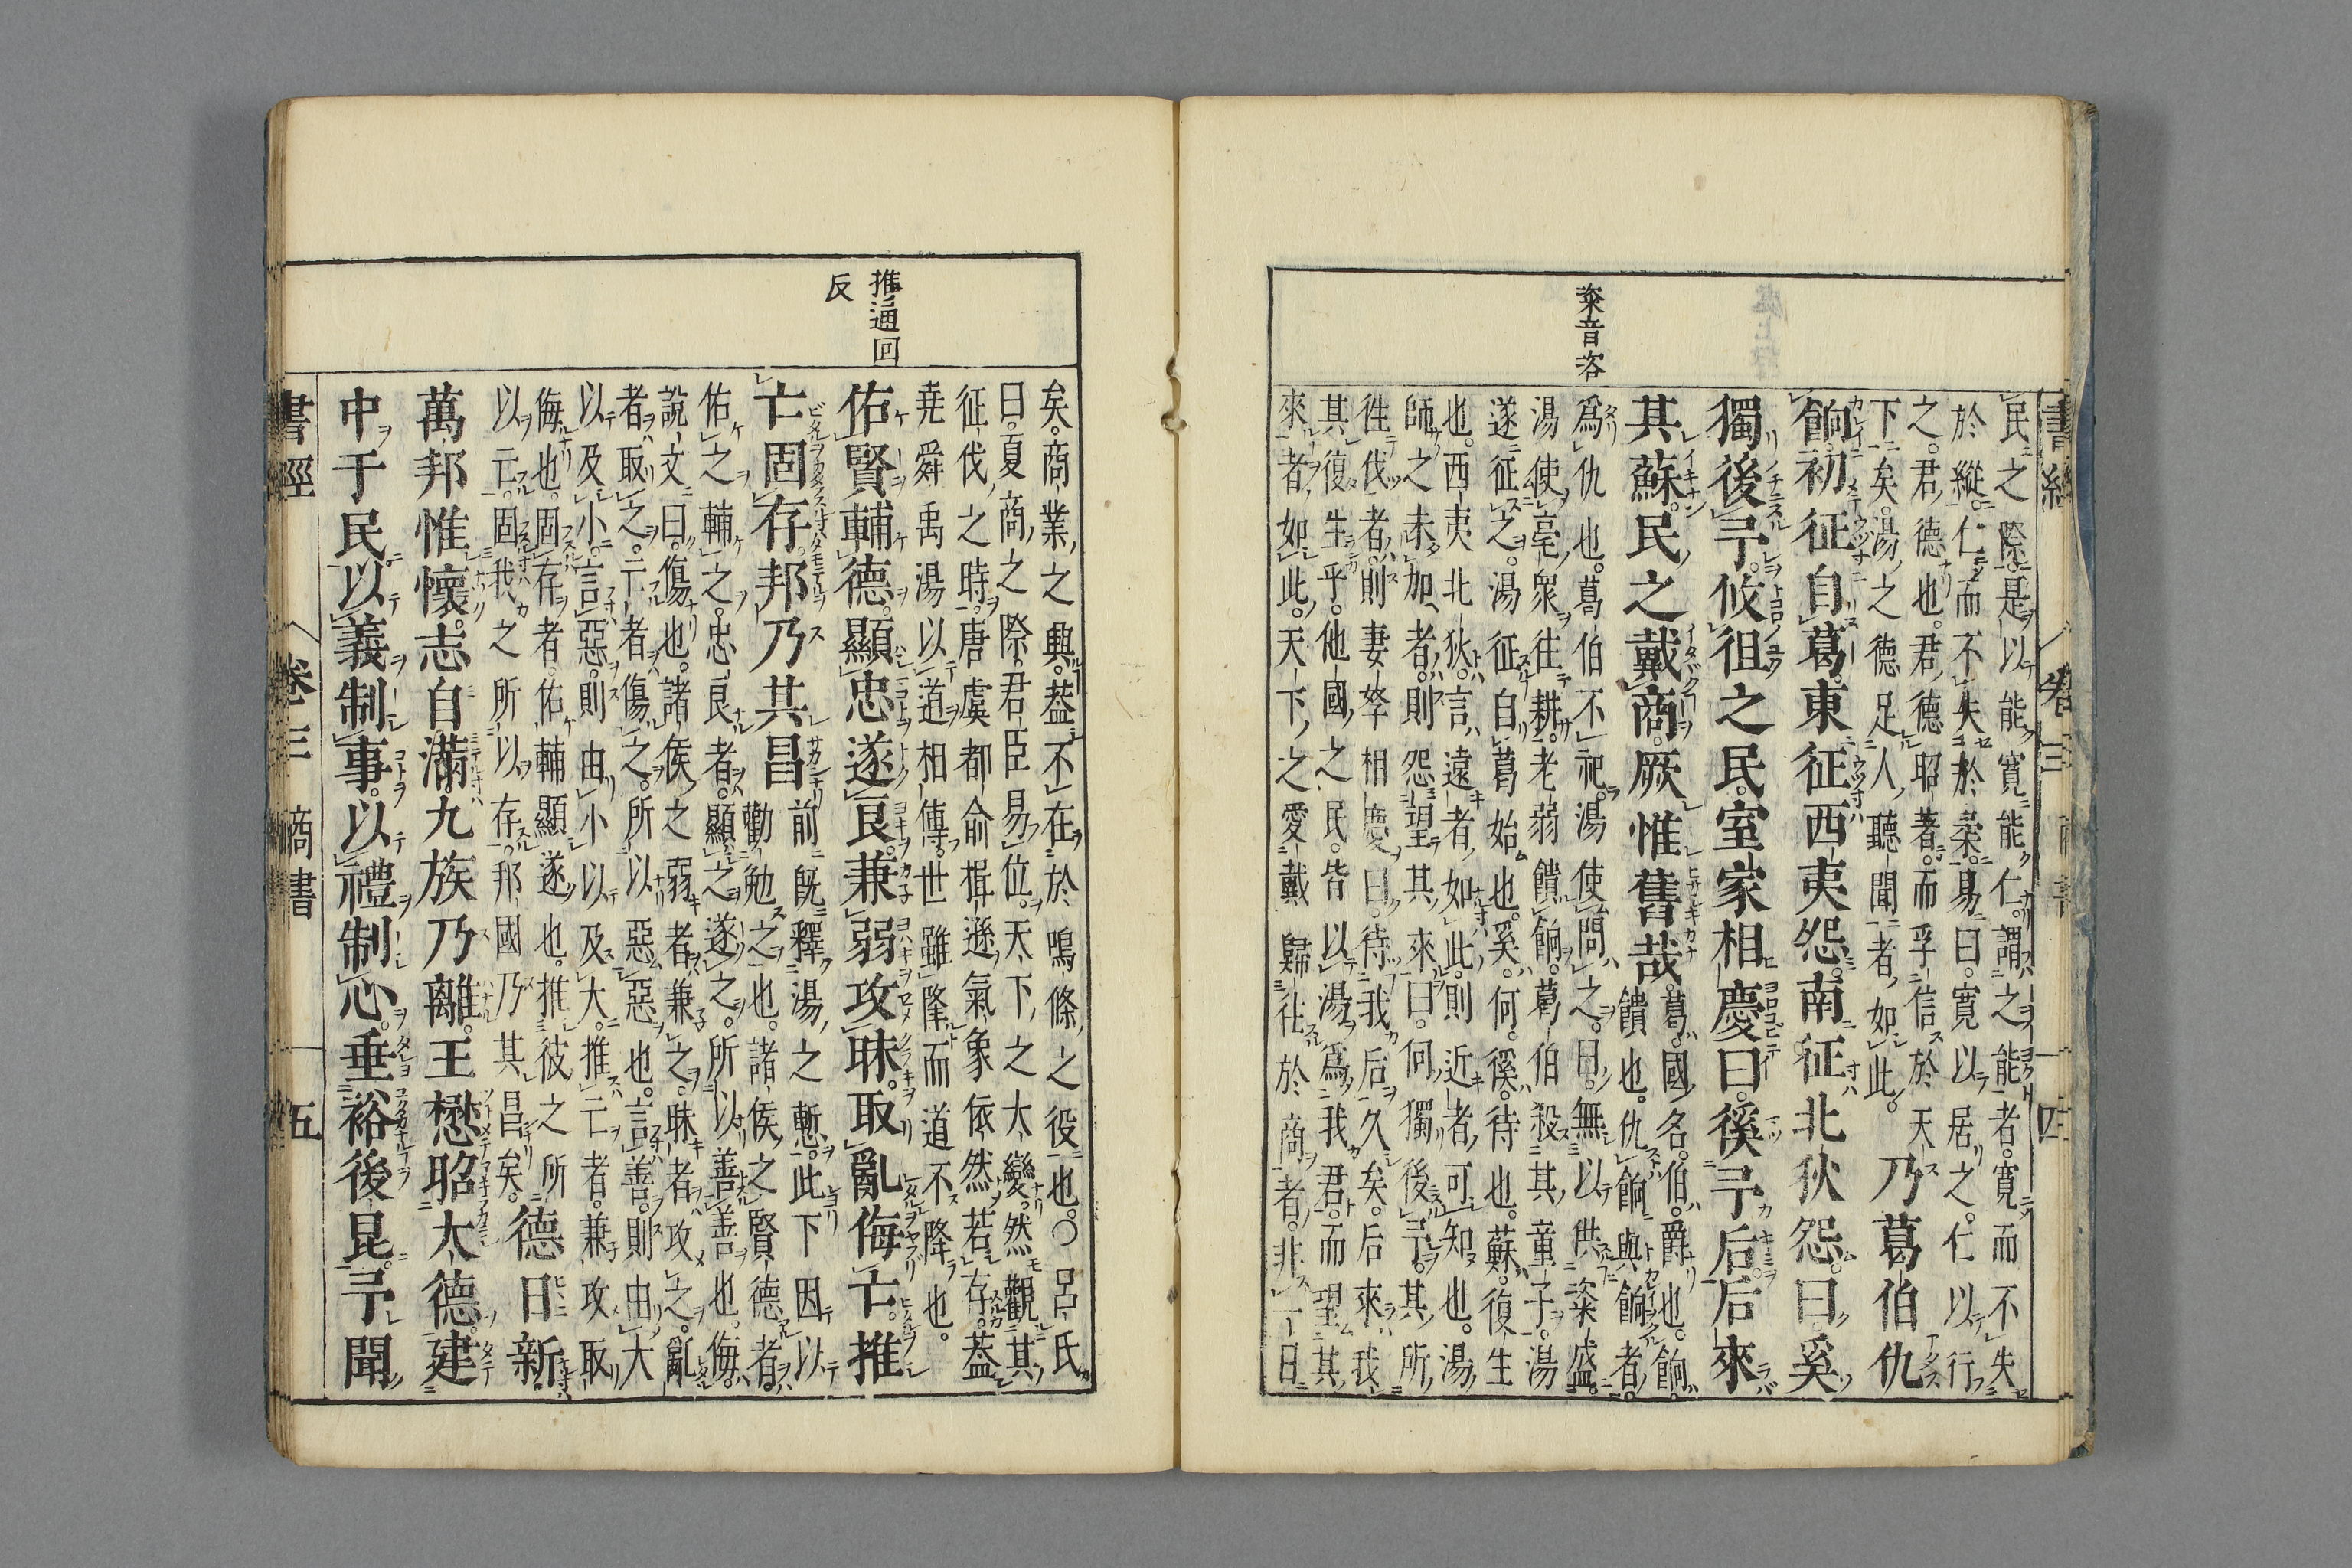 粢音咨
民之際是以能寛能仁謂之能者寛而不失
於縱仁而不失於柔易曰寛以居之仁以行
之君德也君德昭著而孚信於天
下矣湯之德足人聽聞者如此乃葛伯仇
餉初征自葛東征西夷怨南征北狄怨曰奚
獨後予攸徂之民室家相慶曰徯予后后來
其蘇民之戴商厥惟舊哉葛國名伯爵也餉
饋也仇餉與餉者
爲仇也葛伯不祀湯使問之曰無以供粢盛
湯使亳衆往耕老弱饋餉葛伯殺其童子湯
遂征之湯征自葛始也奚何徯待也蘇復生
也西夷北狄言遠者如此則近者可知也湯
師之未加者則怨望其來曰何獨後予其所
徃伐者則妻孥相慶曰待我后久矣后來我
其復生乎他國之民皆以湯爲我君而望其
來者如此天下之愛戴歸往於商者非一日
書經 卷三 商書 四
推通回
反
矣商業之興蓋不在於鳴條之役也○呂氏
曰夏商之際君臣易位天下之大變然觀其
征伐之時唐虞都俞揖遜氣象依然若存蓋
堯舜禹湯以道相傳世雖降而道不降也
佑賢輔德顯忠遂良兼弱攻昧取亂侮亡推
亡固存邦乃其昌前旣釋湯之慙此下因以
勸勉之也諸侯之賢德者
佑之輔之忠良者顯之遂之所以善善也侮
說文曰傷也諸侯之弱者兼之昧者攻之亂
者取之亡者傷之所以惡惡也言善則由大
以及小言惡則由小以及大推亡者兼攻取
侮也固存者佑輔顯遂也推彼之所
以亡固我之所以存邦國乃其昌矣德日新
萬邦惟懷志自滿九族乃離王懋昭大德建
中于民以義制事以禮制心垂裕後昆予聞
書經 卷三 商書 五